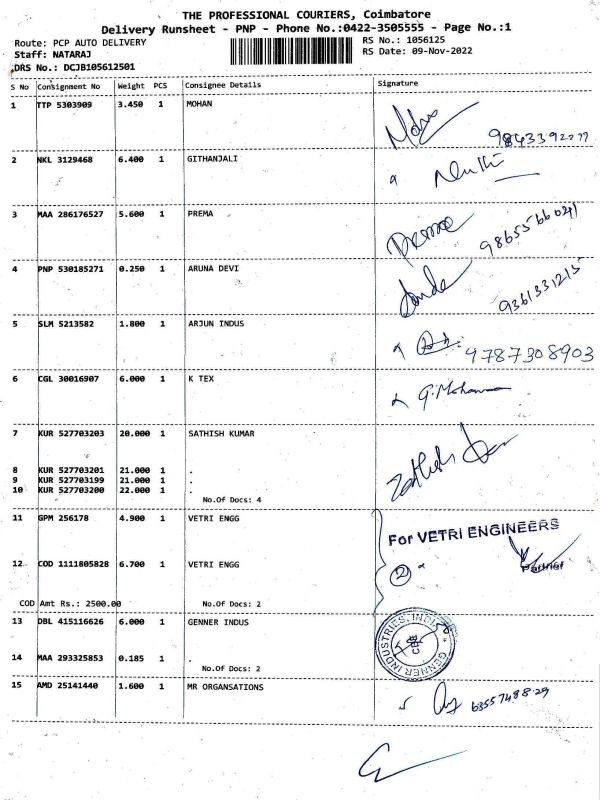 THE PROFESSIONAL COURIERS, Coimbatore
Delivery Runsheet - PNP - Phone No.:0422-3505555 - Page No.:1
Route: PCP AUTO DELIVERY
RS No.: 1056125
Staff: NATARAJ
RS Date: 09-Nov-2022
DRS No.: DCJB105612501
S No Consignment No Weight PCS Consignee Details Signature
1 TTP 5303909 3.450 1 MOHAN
2 NKL 3129468 6.400 1 GITHANJALI
3 MAA 286176527 5.600 1 PREMA
Prema
4 PNP 530185271 0.250 1 ARUNA DEVI
9361331215
5 SLM 5213582 1.800 1 ARJUN INDUS
9787308903
6 CGL 30016907 6.000 1 K TEX
7 KUR 527703203 20.000 1 SATHISH KUMAR
8 KUR 527703201 21.000 1 .
9 KUR 527703199 21.000 1 .
10 KUR 527703200 22.000 1 .
No.Of Docs: 4
11 GPM 256178 4.900 1 VETRI ENGG
For VETRI ENGINEERS
12 COD 1111805828 6.700 1 VETRI ENGG
Partner
2
COD Amt Rs.: 2500.00 No.Of Docs: 2
13 DBL 415116626 6.000 1 GENNER INDUS
GENNER INDUSTRIES, INDIA
CBE
14 MAA 293325853 0.185 1 .
No.Of Docs: 2
15 AMD 25141440 1.600 1 MR ORGANSATIONS